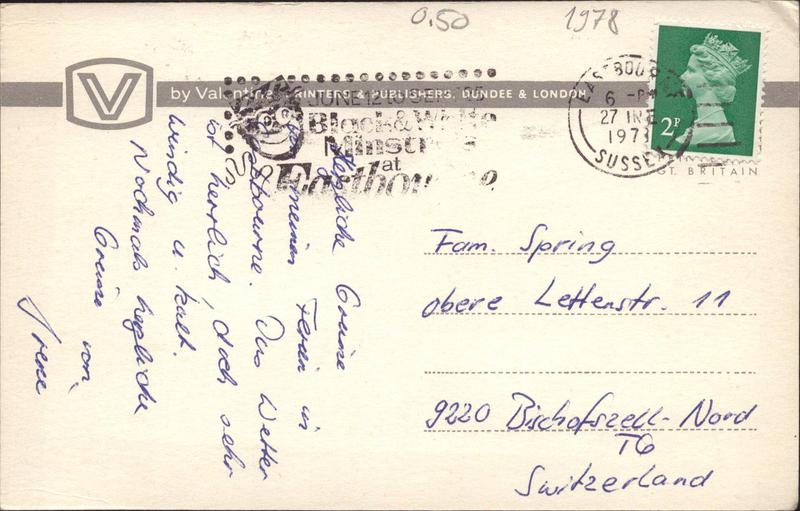 0.50 1978
V
by Valentine PRINTERS & PUBLISHERS, DUNDEE & LONDON
JUNE 12 to SEP
Black & White
Minstrels
at
Eastbourne
EASTBOURNE
6 - PM
27 JNE
197
SUSSEX
2P
GT. BRITAIN
Herzliche Grüsse
meinen Ferien in
Eastbourne. Das Wetter
ist herrlich, doch sehr
windig u. kalt.
Nochmals herzliche
Grüsse von
Irene
Fam. Spring
obere Lettenstr. 11
9220 Bischofszell-Nord
TG
Switzerland